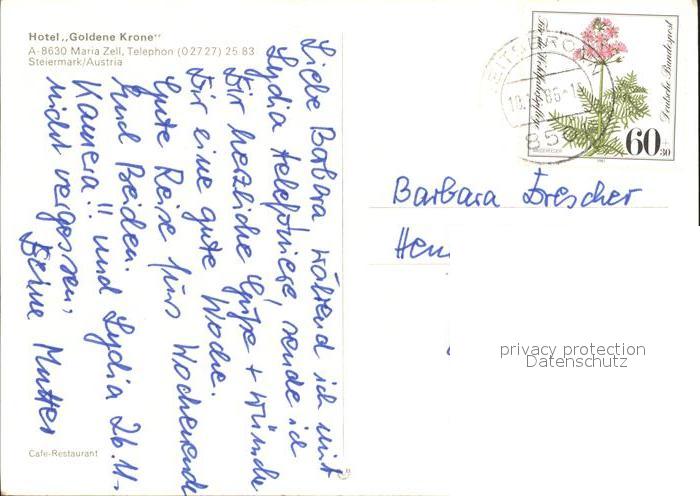 Hotel „Goldene Krone"
A-8630 Maria Zell, Telephon (0 27 27) 25 83
Steiermark/Austria
Liebe Barbara, während ich mit
Lydia telefoniere, sende ich
Dir herzliche Grüße + wünsche
Dir eine gute Woche.
Gute Reise fürs Wochenende
Euch Beiden.
Kamera!! und Lydia 26.11.
nicht vergessen,
Deine Mutter
Cafe-Restaurant
Für die Wohlfahrtspflege
Deutsche Bundespost
60
+30
1981
850
Barbara Drescher
privacy protection
Datenschutz